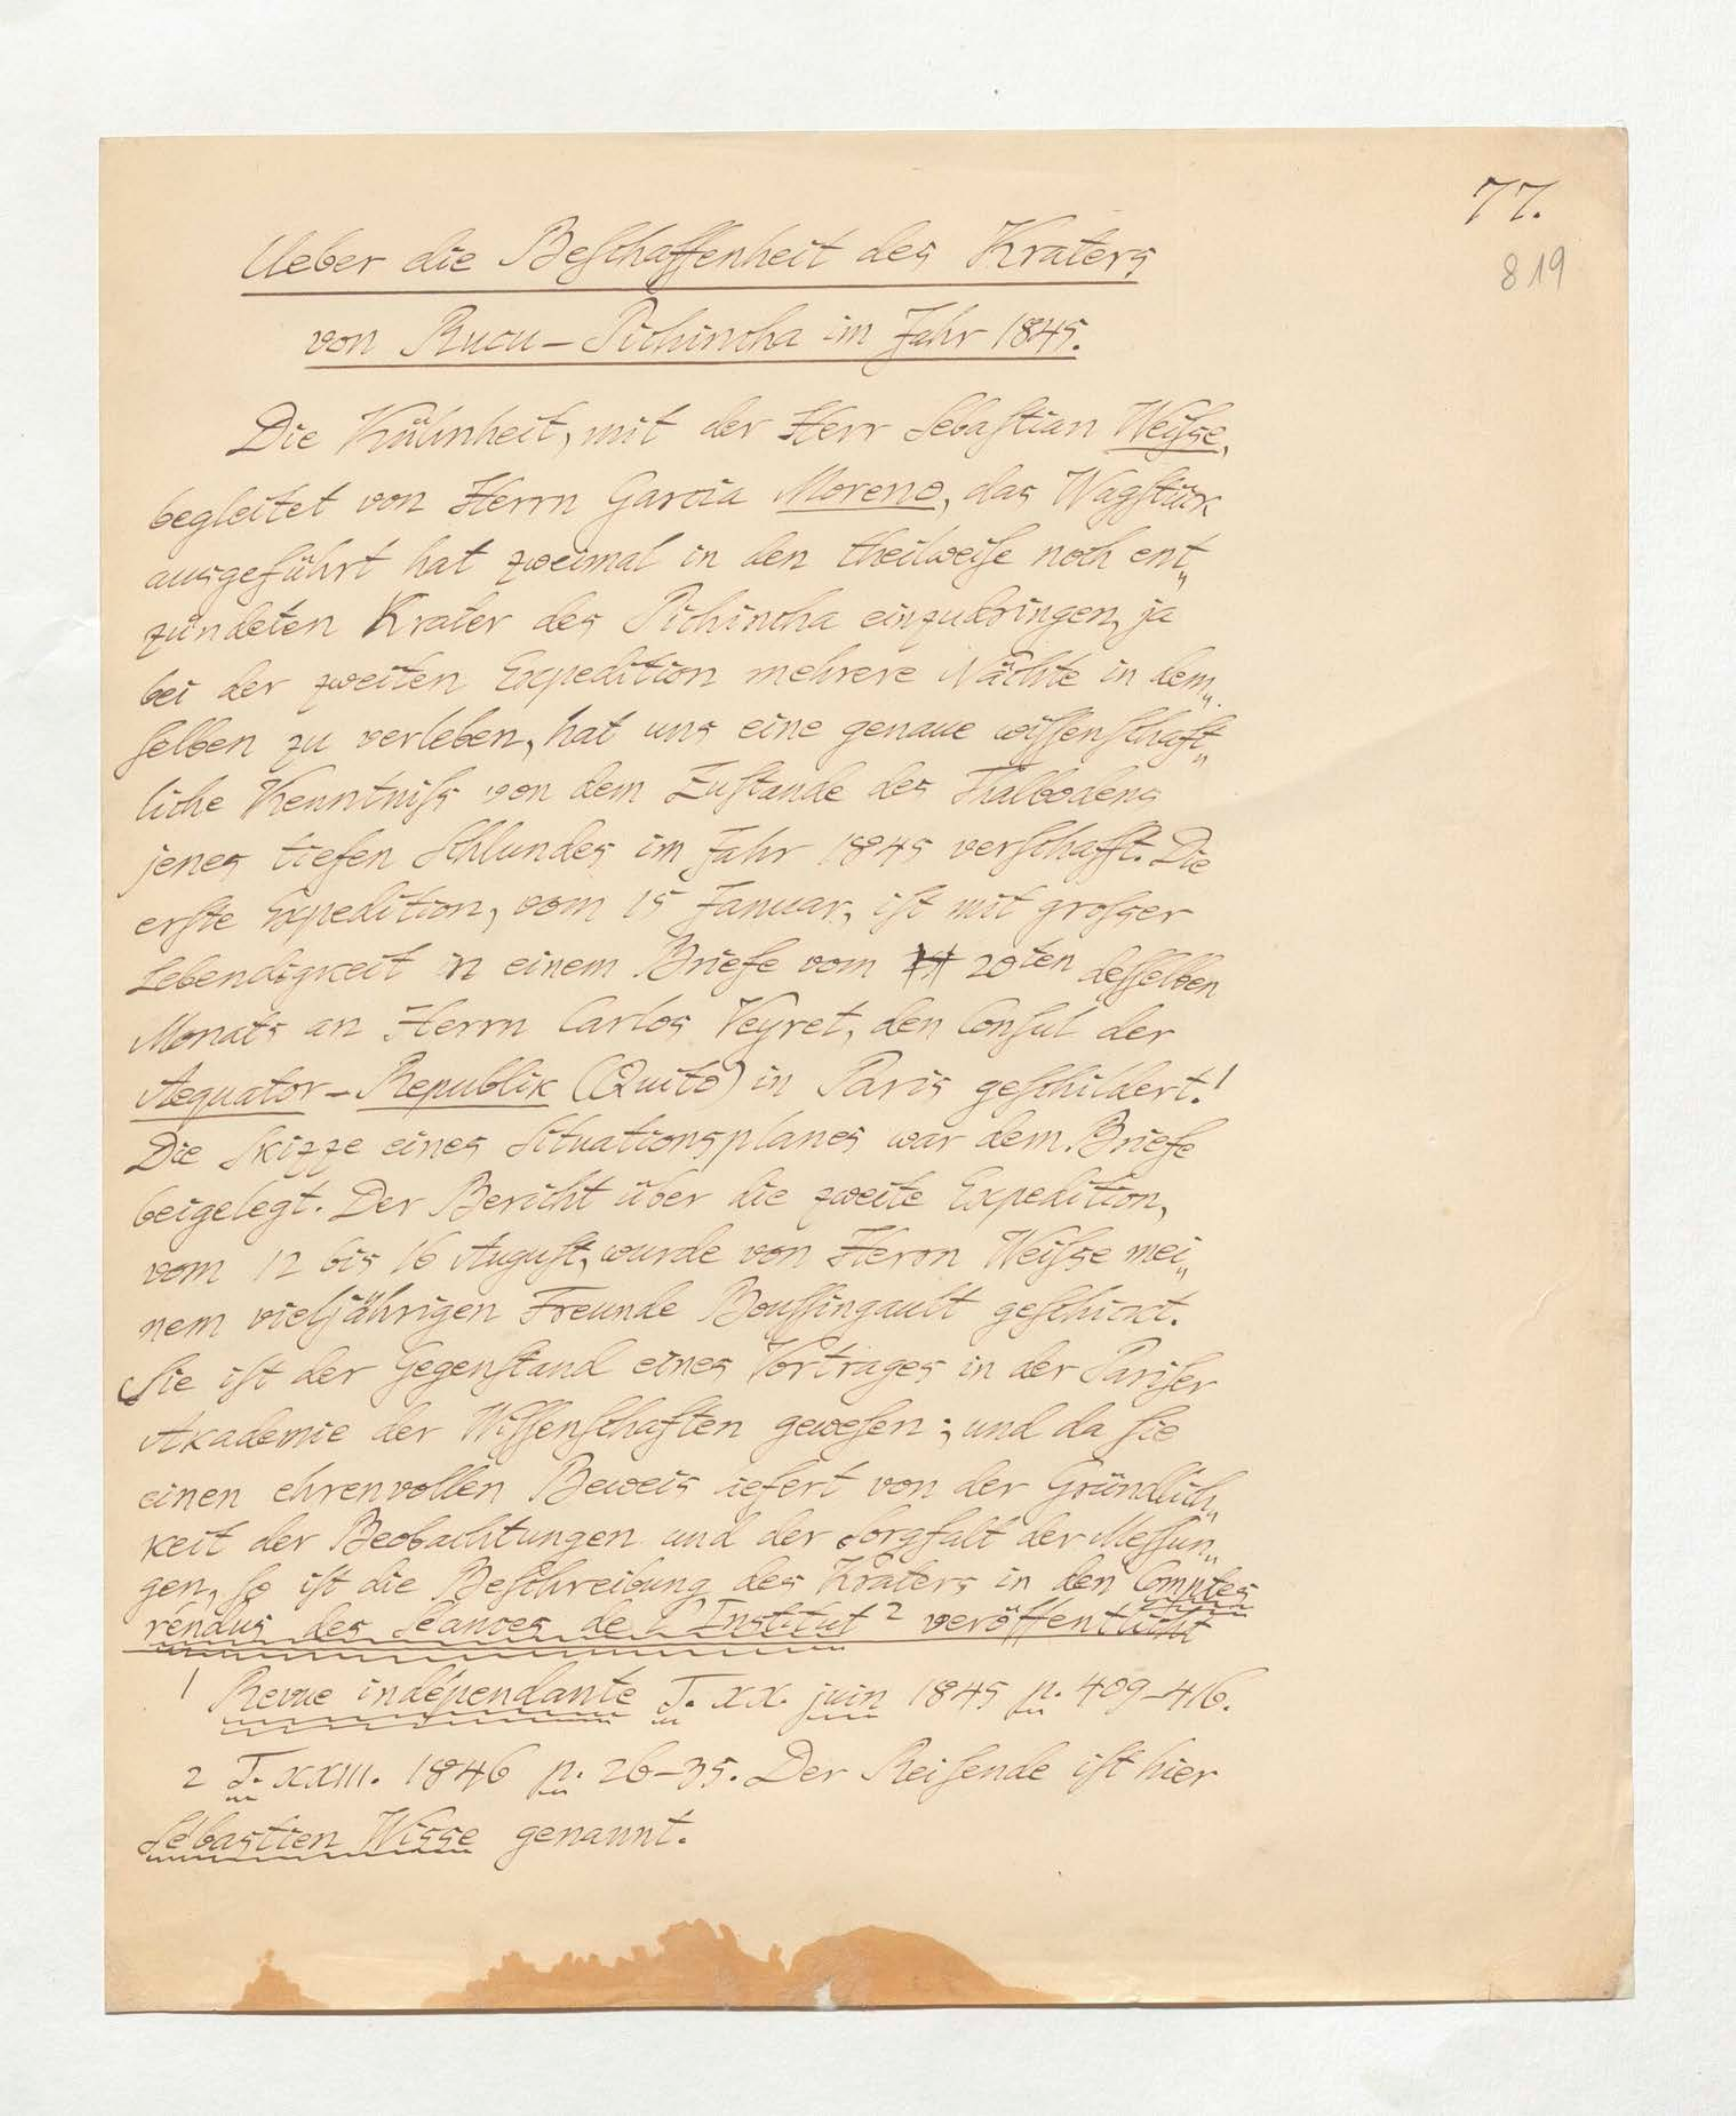 77.
819
Ueber die Beſchaffenheit des Kraters
von Rucu-Pichincha im Jahr 1845.
Die Kühnheit, mit der Herr Sebaſtian Weiſse,
begleitet von Herrn Garcia Moreno, das Wagſtück
ausgeführt hat zweimal in den theilweiſe noch ent„
zündeten Krater des Pichincha einzudringen, ja
bei der zweiten Expedition mehrere Nächte in dem„
ſelben zu verleben, hat uns eine genaue wiſſenſchaft„
liche Kenntniſs von dem Zuſtande des Thalbodens
jenes tiefen Schlundes im Jahr 1845 verſchafft. Die
erſte Expedition, vom 15 Januar, iſt mit groſser
Lebendigkeit in einem Briefe vom 20ten deſſelben
Monats an Herrn Carlos Veyret, den Conſul der
Aequator-Republik (Quito) in Paris geſchildert.1
Die Skizze eines Situationsplanes war dem Briefe
beigelegt. Der Bericht über die zweite Expedition,
vom 12 bis 16 Auguſt, wurde von Herrn Weiſse mei„
nem vieljährigen Freunde Bouſſingault geſchickt.
Sie iſt der Gegenſtand eines Vortrages in der Pariſer
Akademie der Wiſſenſchaften geweſen; und da ſie
einen ehrenvollen Beweis liefert von der Gründlich„
keit der Beobachtungen und der Sorgfalt der Meſſun„
gen, ſo iſt die Beſchreibung des Kraters in den Comptes
rendus des Séances de l'Institut 2 veröffentlicht
1 Revue indépendante T. XX. juin 1845 p. 409-416.
2 T. XXIII. 1846 p. 26-35. Der Reiſende iſt hier
Sébastien Wisse genannt.